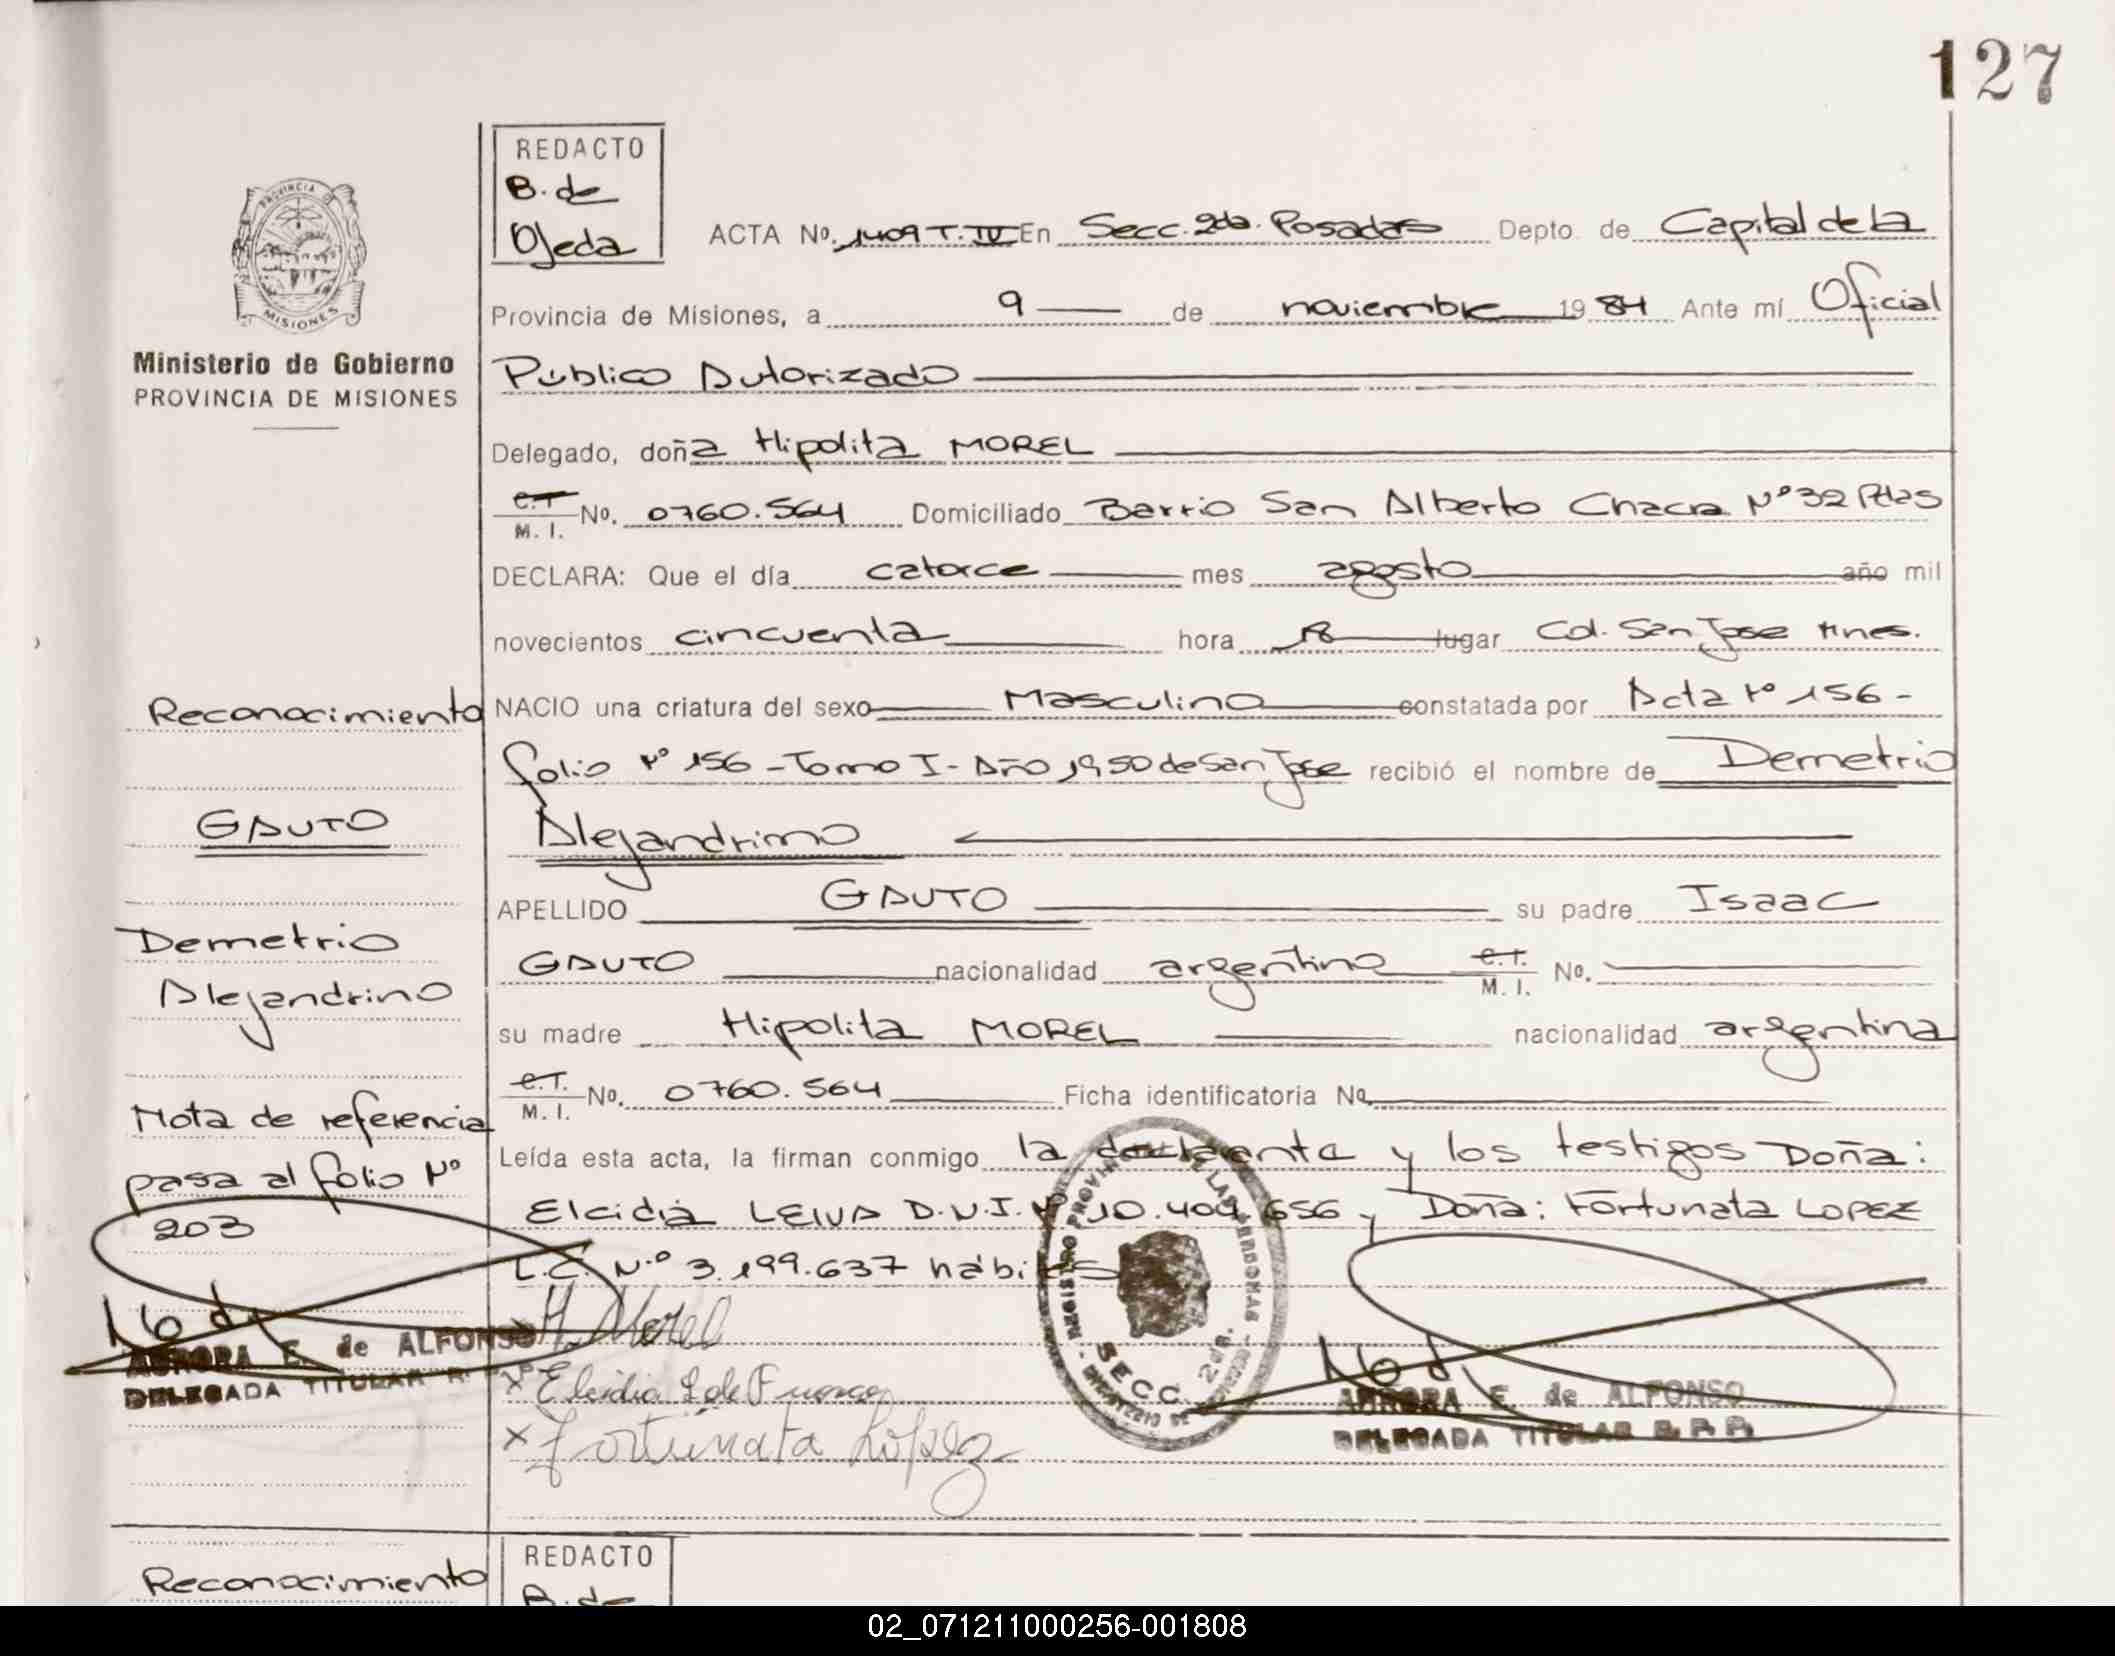 127
REDACTO
B. de
Ojeda
ACTA Nº. 1409 T. IV En Secc. 2da. Posadas Depto. de Capital de la
PROVINCIA DE MISIONES
Provincia de Misiones, a 9 de noviembre 1984 Ante mí Oficial
Ministerio de Gobierno
PROVINCIA DE MISIONES
Público Autorizado
Delegado, doña Hipolita MOREL
C.T. M. I. No. 0760.564 Domiciliado Barrio San Alberto Chacra Nº 32 Pdas
DECLARA: Que el día catorce mes agosto año mil
novecientos cincuenta hora 18 lugar Col. San Jose Mnes.
Reconocimiento
NACIO una criatura del sexo Masculino constatada por Acta Nº 156 -
folio Nº 156 - Tomo I - Año 1950 de San Jose recibió el nombre de Demetrio
GAUTO
Alejandrino
APELLIDO GAUTO su padre Isaac
Demetrio
Alejandrino
GAUTO nacionalidad argentino C.T. M. I. No.
su madre Hipolita MOREL nacionalidad argentina
C.T. M. I. No. 0760.564 Ficha identificatoria No.
Nota de referencia
pasa al folio Nº
203
Leída esta acta, la firman conmigo la declarante y los testigos Doña:
Elcidia LEIVA D.N.I. Nº 10.404.656 y Doña: Fortunata LOPEZ
L.C. N.º 3.199.637 hábiles
H. Morel
AURORA E. de ALFONSO
DELEGADA TITULAR R.
x Elcidia L de
x Fortunata López
REGISTRO PROVINCIAL DE LAS PERSONAS
SECC. 2da.
AURORA E. de ALFONSO
DELEGADA TITULAR R. P. P.
Reconocimiento
REDACTO
B. de
02_071211000256-001808